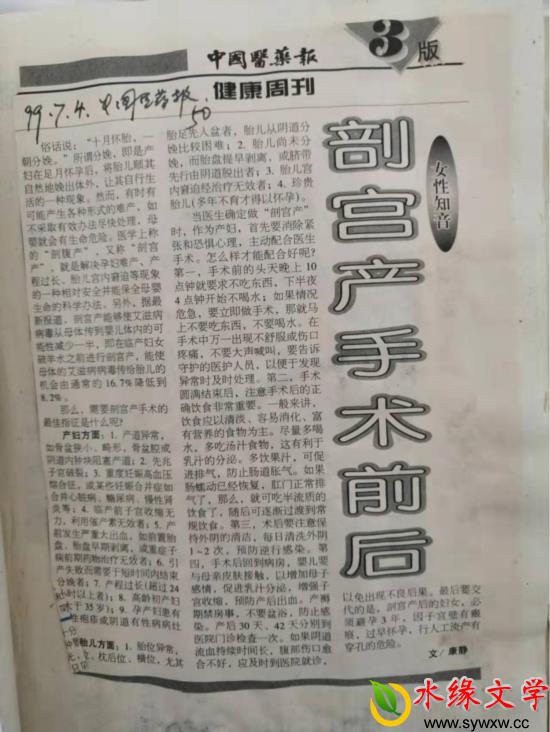 中國醫藥報
健康周刊
3版
99.7.4.中国医药报
50
剖宫产手术前后
女性知音
俗话说：“十月怀胎，一
朝分娩。”所谓分娩，即是产
妇在足月怀孕后，将胎儿顺其
自然地娩出体外，让其自行生
活的一种现象。然而，有时有
可能产生各种形式的难产，如
不采取有效办法尽快处理，母
婴就会有生命危险。医学上称
的“剖腹产”，又称“剖宫
产”，就是解决孕妇难产，产
程过长、胎儿宫内窘迫等现象
的一种相对安全并能保全母婴
生命的科学办法。另外，据最
新报道，剖宫产能够使艾滋病
病毒从母体传到婴儿体内的可
能性减少一半，即在临产妇女
破羊水之前进行剖宫产，能使
母体的艾滋病病毒传给胎儿的
机会由通常的16.7%降低到
8.2%。
那么，需要剖宫产手术的
最佳指征是什么呢？
产妇方面：1.产道异常，
如骨盆狭小、畸形，骨盆腔或
阴道内肿块阻塞产道；2.先兆
子宫破裂；3.重度妊娠高血压
综合征，或某些妊娠合并症如
合并心脏病、糖尿病、慢性肾
炎等；4.临产前子宫收缩无
力，利用催产素无效者；5.产
前发生严重大出血，如前置胎
盘、胎盘早期剥离，或重症子
痫前期药物治疗无效者；6.引
产失败而需要于短时间内结束
分娩者；7.产程过长(超过24
小时以上者)；8.高龄初产妇
(大于35岁)；9.孕产妇患有
性疱疹或阴道有性病病灶
胎儿方面：1.胎位异常，
枕后位、横位，尤其
胎足先入盆者，胎儿从阴道分
娩比较困难；2.胎儿尚未分
娩，而胎盘提早剥离，或脐带
先行由阴道脱出者；3.胎儿宫
内窘迫经治疗无效者；4.珍贵
胎儿(多年不育才得以怀孕)。
当医生确定做“剖宫产”
时，作为产妇，首先要消除紧
张和恐惧心理，主动配合医生
手术。怎么样才能配合好呢？
第一，手术前的头天晚上10
点钟就要求不吃东西，下半夜
4点钟开始不喝水；如果情况
危急，要立即做手术，那就马
上不要吃东西，不要喝水。在
手术中万一出现不舒服或伤口
疼痛，不要大声喊叫，要告诉
守护的医护人员，以便于发现
异常时及时处理。第二，手术
圆满结束后，注意手术后的正
确饮食非常重要。一般来讲，
饮食应以清淡、容易消化、富
有营养的食物为主。尽量多喝
水，多吃汤汁食物，这有利于
乳汁的分泌。多饮果汁，可促
进排气，防止肠道胀气。如果
肠蠕动已经恢复，肛门正常排
气了，那么，就可吃半流质的
饮食了，随后可逐渐过渡到常
规饮食。第三，术后要注意保
持外阴的清洁，每日清洗外阴
1～2次，预防逆行感染。第
四，手术后回到病房，婴儿要
与母亲皮肤接触，以增加母子
感情，促进乳汁分泌，增强子
宫收缩，预防产后出血。产褥
期禁房事，不要盆浴，防止感
染。产后30天，42天分别到
医院门诊检查一次。如果阴道
流血持续时间长，腹部伤口愈
合不好，应及时到医院就诊，
以免出现不良后果。最后要交
代的是，剖宫产后的妇女，必
须避孕3年，因子宫壁有瘢
痕，过早怀孕，行人工流产有
穿孔的危险。
文／康静
水缘文学
www.sywxw.com